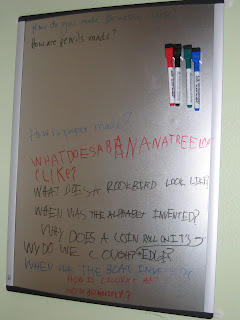 How do you make
How are pencils made?
How is paper made?
WHAT DOES A BANANA TREE LOO
K LIKE?
WHAT DOES A ROOK BIRD LOOK LIKE?
WHEN WAS THE ALPHABET INVENTED?
WHY DOES A COIN ROLL ON ITS
WY DO WE COUGH? EDGE?
WHEN WAS THE BOAT
HOW IS